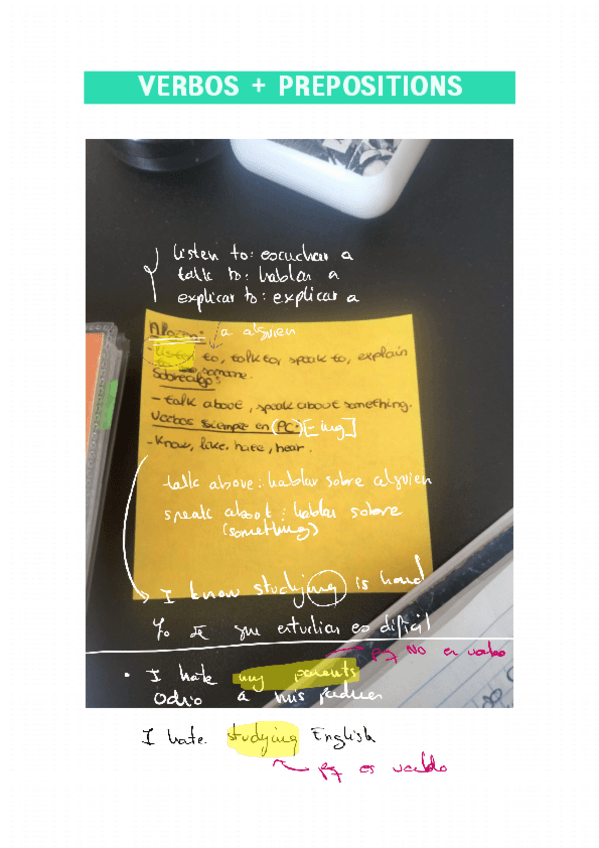 VERBOS + PREPOSITIONS
listen to: escuchar a
talk to: hablar a
explicar to: explicar a
a alguien
- listen to, talk to, speak to, explain
to someone.
Sobre algo:
- talk about, speak about something.
Verbos siempre en (PC) [-ing]
- Know, like, hate, hear.
talk above: hablar sobre alguien
speak about: hablar sobre
(something)
I know studying is hard
Yo sé que estudiar es difícil
pq NO es verbo
• I hate my parents
Odio a mis padres
I hate studying English
pq es verbo